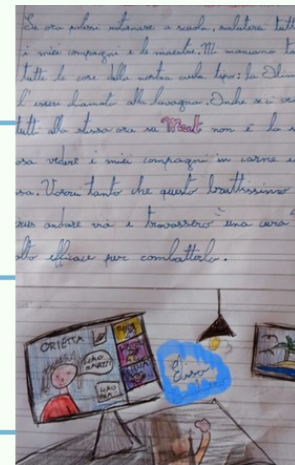 Se ora potessi ritornare a scuola, saluterei tutti
i miei compagni e le maestre. Mi mancano
tutte le cose della nostra aula tipo: la
l'essere chiamati alla lavagna. Anche se ci
tutti alla stessa ora su Meet non è la
vedere i miei compagni in carne
Vorrei tanto che questo bruttissimo
andare via e trovassero una cura
efficace per combatterlo.
ORIETTA
CIAO
di